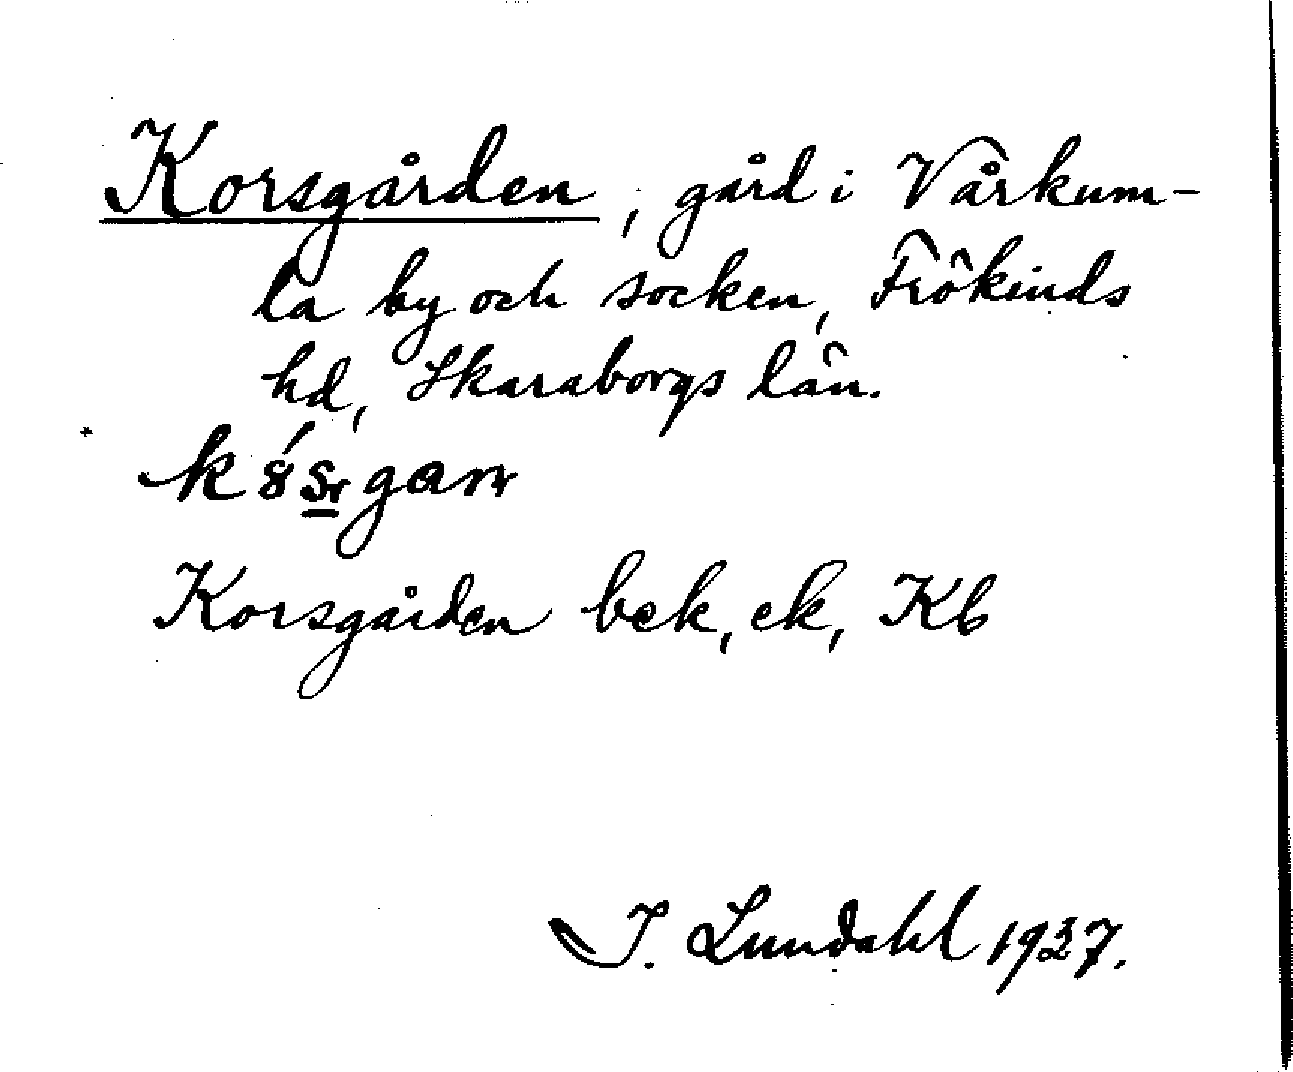 Korsgården, gård i Vårkum-
la by och socken, Frökinds
hd, Skaraborgs län.
Korsgården bek, ek, Kb
I. Lundahl 1937.